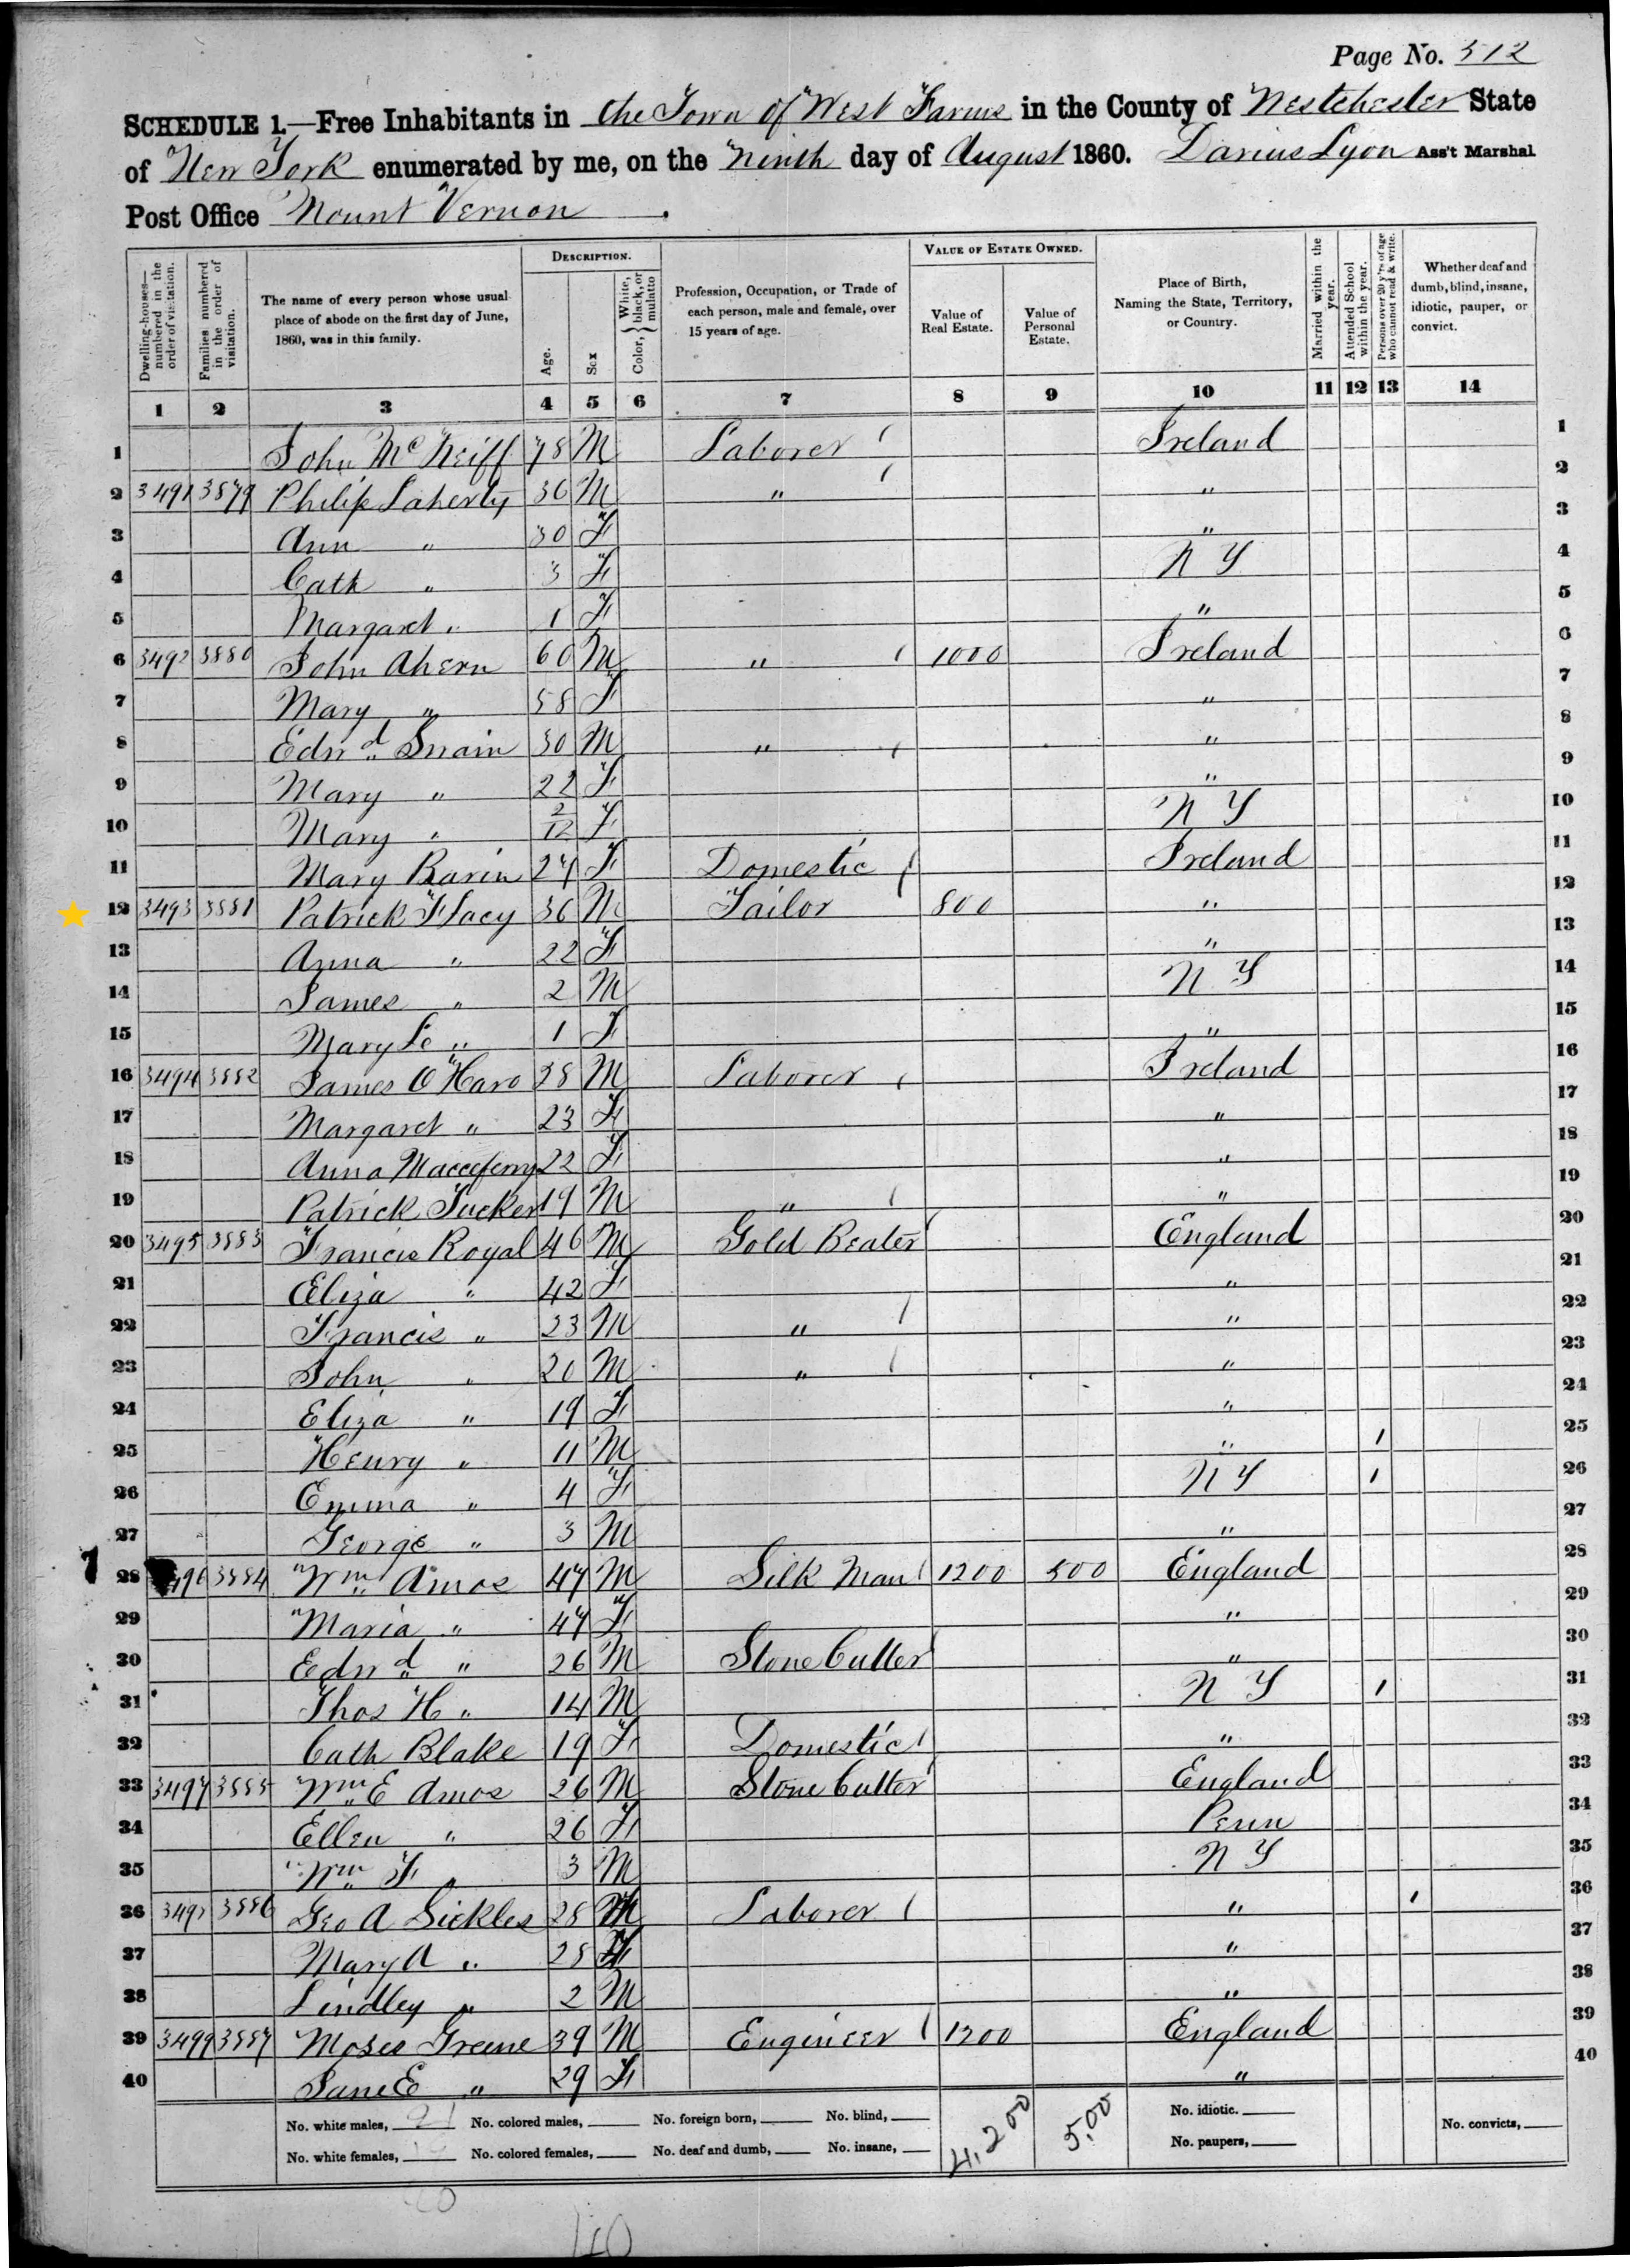 Page No. 512
SCHEDULE 1.—Free Inhabitants in the Town of West Farms in the County of Westchester State
of New York enumerated by me, on the Ninth day of August 1860. Darius Lyon Ass't Marshal
Post Office Mount Vernon.
DESCRIPTION. VALUE OF ESTATE OWNED.
Dwelling-houses—numbered in the order of visitation.
Families numbered in the order of visitation.
The name of every person whose usual place of abode on the first day of June, 1860, was in this family.
Age.
Sex
Color, { White, black, or mulatto
Profession, Occupation, or Trade of each person, male and female, over 15 years of age.
Value of Real Estate.
Value of Personal Estate.
Place of Birth, Naming the State, Territory, or Country.
Married within the year.
Attended School within the year.
Persons over 20 y'rs of age who cannot read & write.
Whether deaf and dumb, blind, insane, idiotic, pauper, or convict.
1 2 3 4 5 6 7 8 9 10 11 12 13 14
1 John McNeiff 78 M Laborer Ireland 1
2 3491 3879 Philip Laherty 36 M " " 2
3 Ann " 30 F " 3
4 Cath " 3 F N Y 4
5 Margaret " 1 F " 5
6 3492 3880 John Ahern 60 M " 1000 Ireland 6
7 Mary " 58 F " 7
8 Edwd Swain 30 M " " 8
9 Mary " 22 F " 9
10 Mary " 2/12 F N Y 10
11 Mary Barin 24 F Domestic Ireland 11
12 3493 3881 Patrick Flacy 36 M Tailor 800 " 12
13 Anna " 22 F " 13
14 James " 2 M N Y 14
15 Mary " 1 F " 15
16 3494 3882 James O'Haro 28 M Laborer Ireland 16
17 Margaret " 23 F " 17
18 Anna 22 F " 18
19 Patrick Tucker 19 M " " 19
20 3495 3883 Francis Royal 46 M Gold Beater England 20
21 Eliza " 42 F " 21
22 Francis " 23 M " " 22
23 John " 20 M " " 23
24 Eliza " 19 F " 24
25 Henry " 11 M " / 25
26 Emma " 4 F N Y / 26
27 George " 3 M " 27
28 496 3884 Wm Amos 47 M Silk Man 1200 500 England 28
29 Maria " 47 F " 29
30 Edwd " 26 M Stone Cutter " 30
31 Thos H " 14 M N Y / 31
32 Cath Blake 19 F Domestic " 32
33 3497 3885 Wm E Amos 26 M Stone Cutter England 33
34 Ellen " 26 F Penn 34
35 Wm F " 3 M N Y 35
36 3498 3886 Geo A Sickles 28 M Laborer " / 36
37 Mary A " 28 F " 37
38 Lindley " 2 M " 38
39 3499 3887 Moses Greene 39 M Engineer 1200 England 39
40 Jane E " 29 F " 40
No. white males, 21 No. colored males, No. foreign born, No. blind, 4,200 5,00 No. idiotic. No. convicts,
No. white females, No. colored females, No. deaf and dumb, No. insane, No. paupers,
40